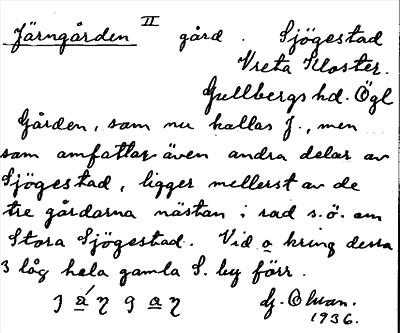 Järngården II gård. Sjögestad
Vreta Kloster.
Gullbergs hd. Ögl
Gården, som nu kallas J., men
som omfattar även andra delar av
Sjögestad, ligger mellerst av de
tre gårdarna nästan i rad s.ö. om
Stora Sjögestad. Vid o kring dessa
3 låg hela gamla S. by förr.
G. Ohvan.
1936.